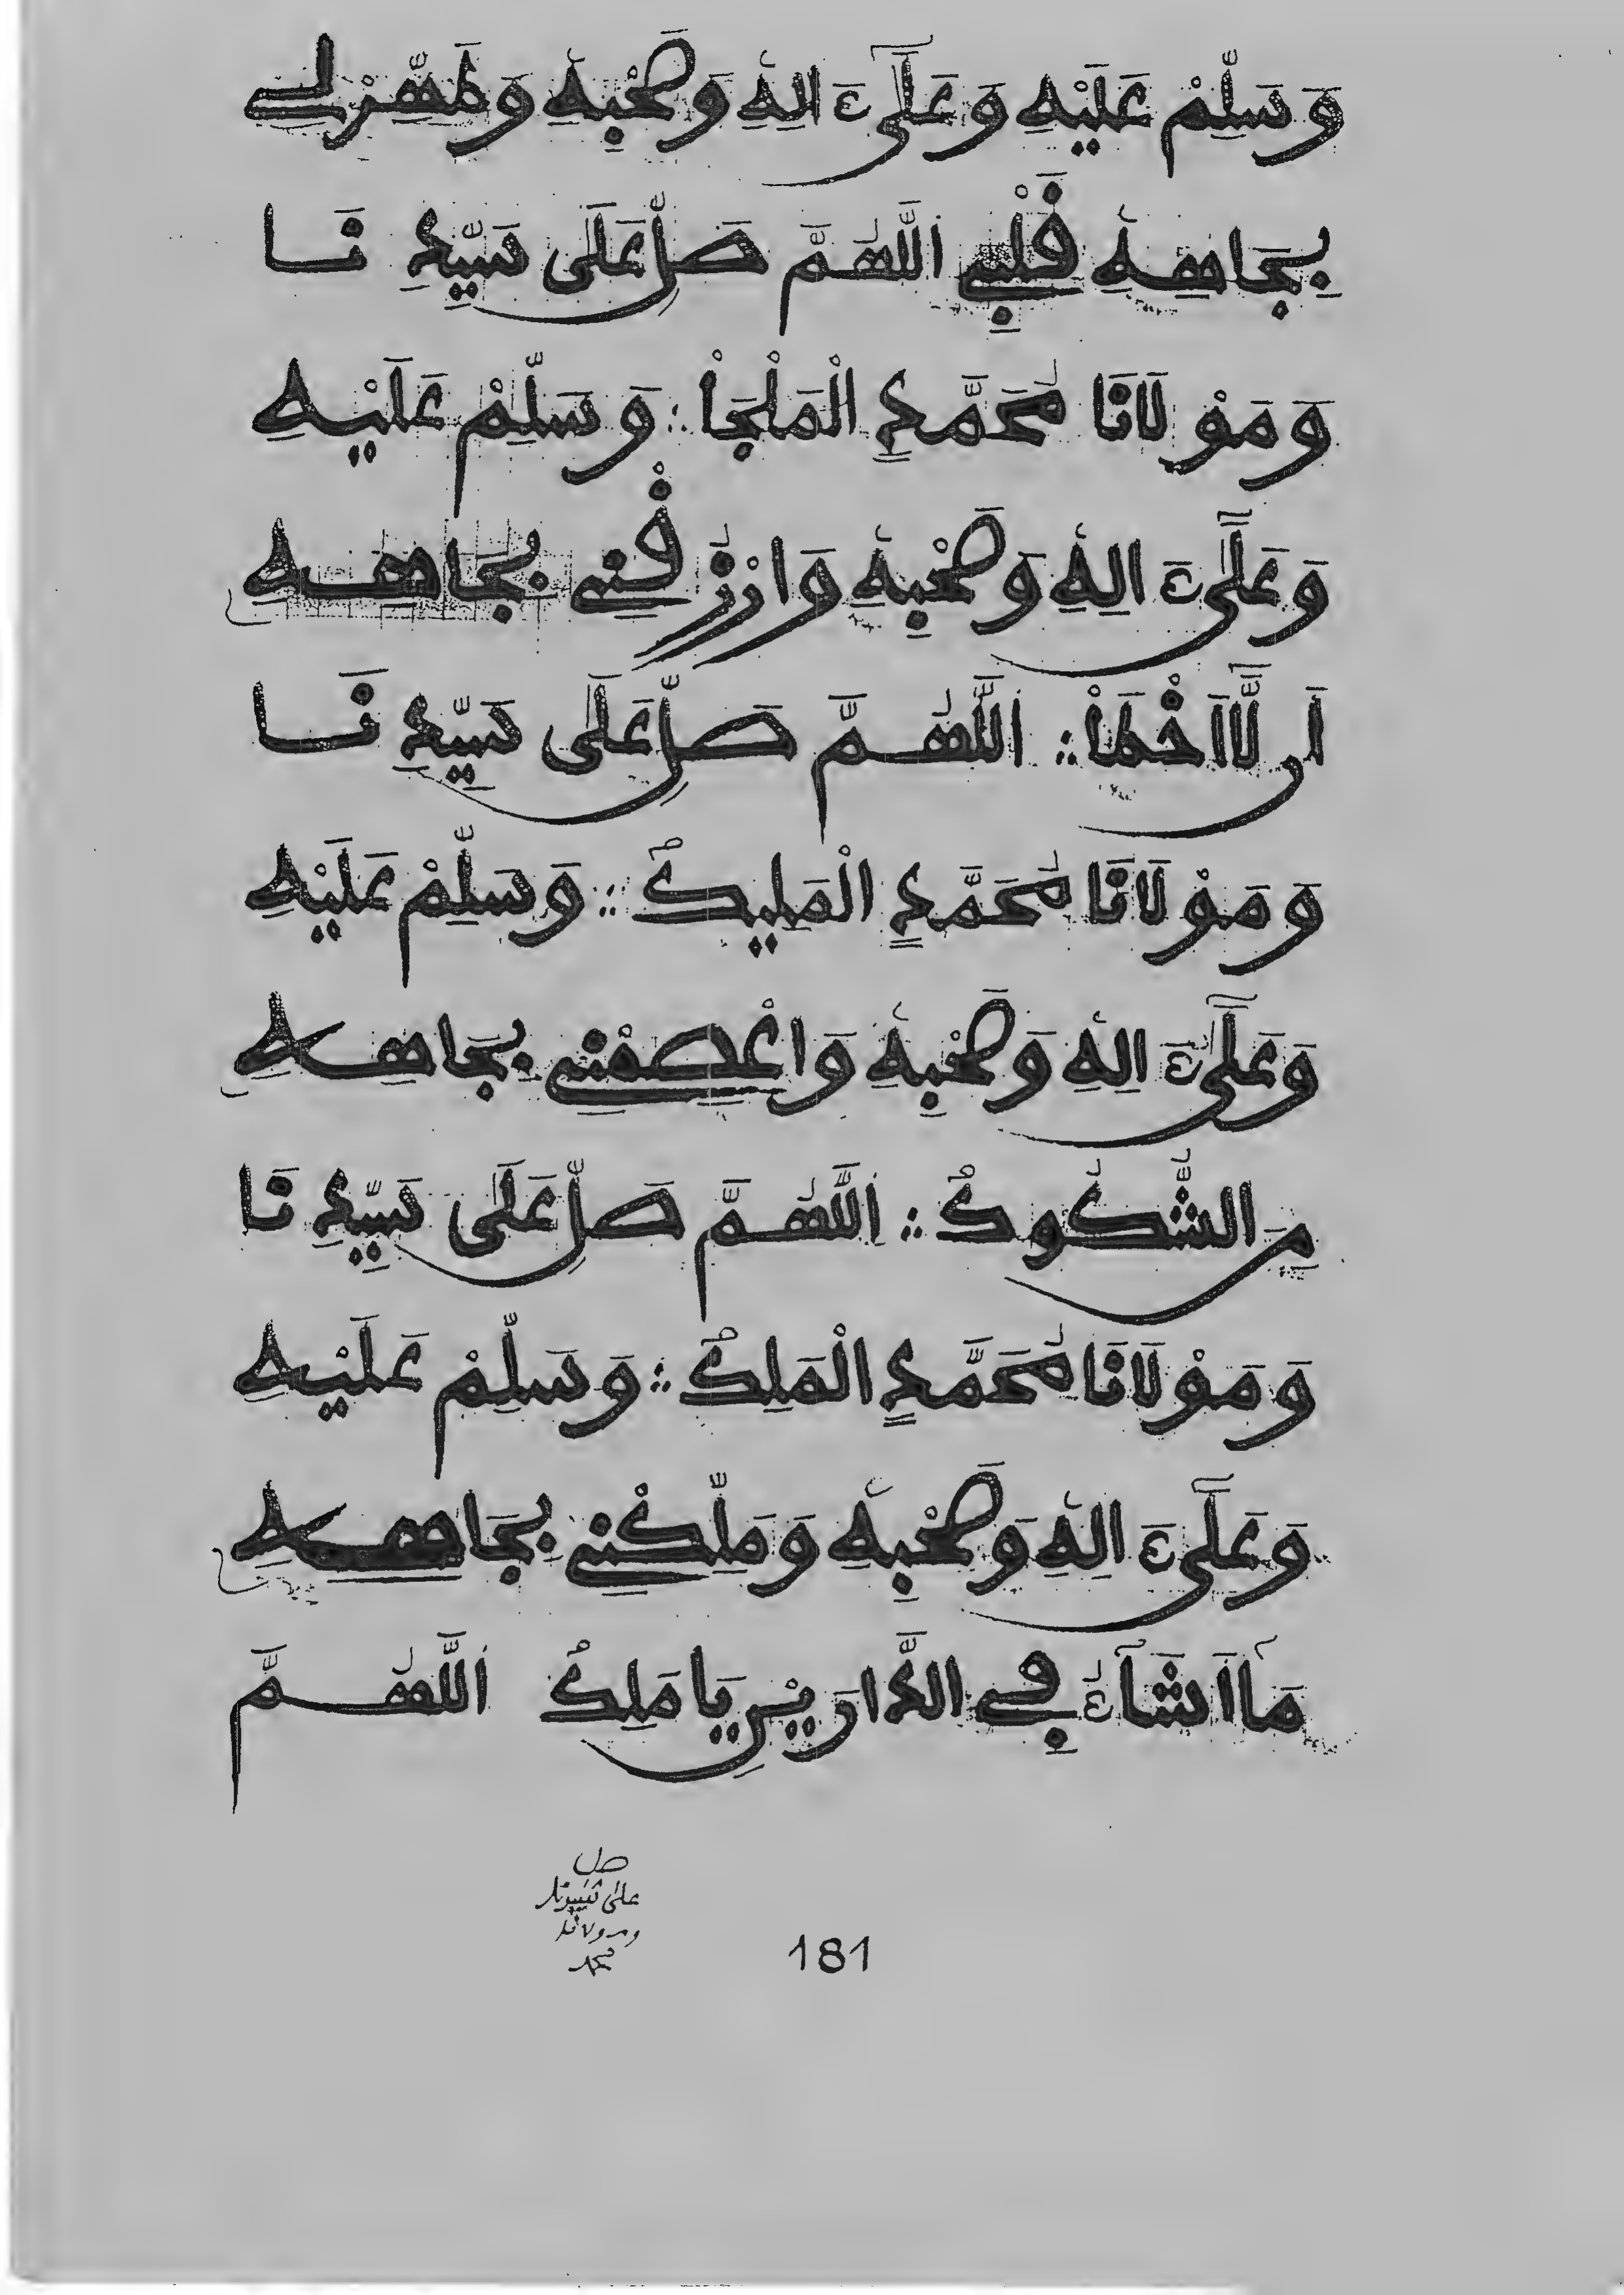 وَسَلِّمْ عَلَيْهِ وَعَلَىٰٓ ءَالِهِ وَصَحْبِهِ وَطَهِّرْ لِے
بِجَاهِهِ قَلْبِے اَللَّهُمَّ صَلِّ عَلَى سَيِّدِنَا
وَمَوْلَانَا مُحَمَّدٍ الْمَلْجَإِ وَسَلِّمْ عَلَيْهِ
وَعَلَىٰٓ ءَالِهِ وَصَحْبِهِ وَارْزُقْنِے بِجَاهِهِ
أَن لَّا أَخْطَأْ ۞ اَللَّهُمَّ صَلِّ عَلَى سَيِّدِنَا
وَمَوْلَانَا مُحَمَّدٍ الْمَلِيكْ ۞ وَسَلِّمْ عَلَيْهِ
وَعَلَىٰٓ ءَالِهِ وَصَحْبِهِ وَاعْصِمْنِے بِجَاهِهِ
مِنَ الشُّكُوكْ ۞ اَللَّهُمَّ صَلِّ عَلَى سَيِّدِنَا
وَمَوْلَانَا مُحَمَّدٍ الْمَلِكْ ۞ وَسَلِّمْ عَلَيْهِ
وَعَلَىٰٓ ءَالِهِ وَصَحْبِهِ وَمَلِّكْنِے بِجَاهِهِ
مَا أَشَآءُ فِے الدَّارَيْنِ يَا مَلِكْ اَللَّهُمَّ
صل
على
ومولانا
محمد
181